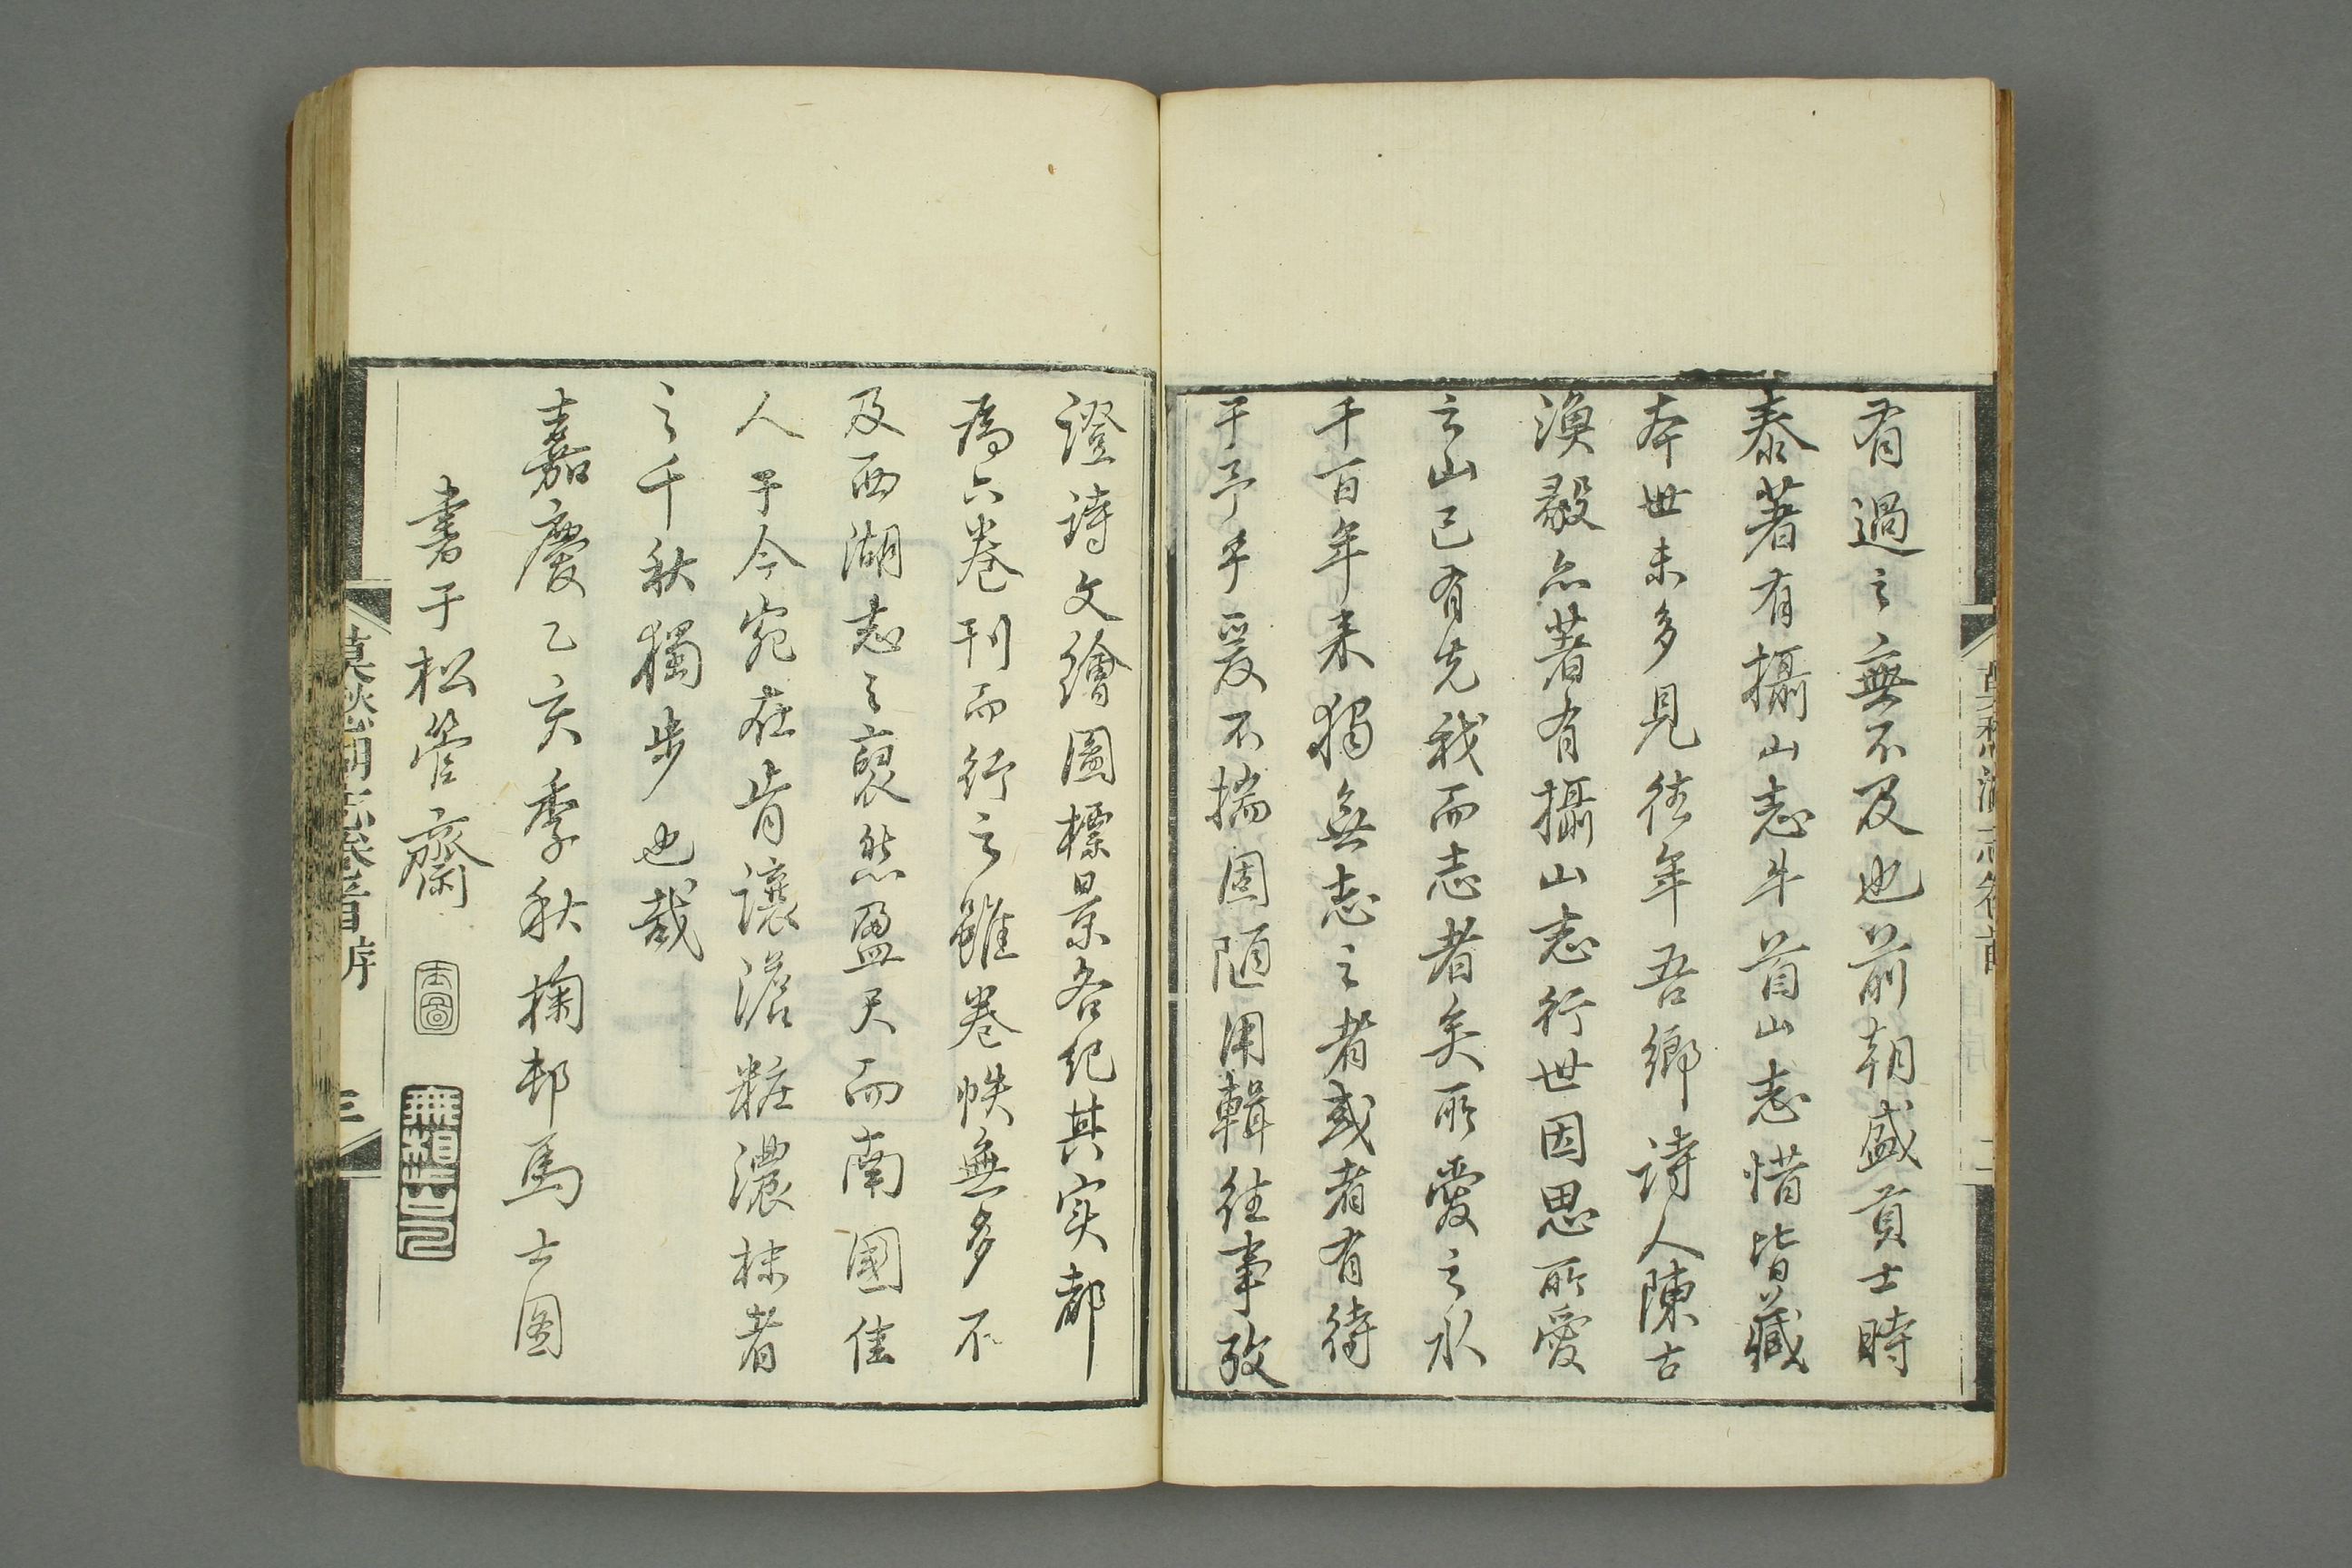 有過之無不及也前朝盛貢士時
泰著有攝山志牛首山志惜皆藏
本世未多見往年吾鄉詩人陳古
漁毅亦著有攝山志行世因思所愛
之山已有先我而志者矣所愛之水
千百年来獨無志之者或者有待
于予乎爰不揣固陋用輯往事攷
證詩文繪圖標景各紀其实都
為六卷刊而行之雖卷帙無多不
及西湖志之裒然盈尺而南國佳
人于今宛在肯讓澹粧濃抹者
之千秋獨步也哉
嘉慶乙亥季秋掬邨馬士图
書于松管齋
士圖
莫愁湖志卷首序
三
莫愁湖志卷首
二